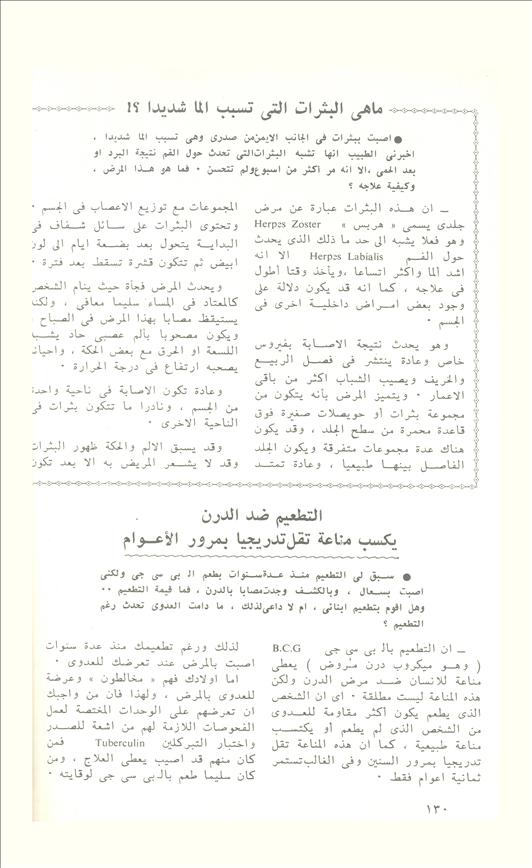 ماهى البثرات التى تسبب الما شديدا ؟!
● اصبت ببثرات فى الجانب الايمن من صدرى وهى تسبب الما شديدا ،
اخبرنى الطبيب انها تشبه البثرات التى تحدث حول الفم نتيجة البرد او
بعد الحمى ، الا انه مر اكثر من اسبوع ولم تتحسن ٠ فما هو هذا المرض ،
وكيفية علاجه ؟
ــ ان هذه البثرات عبارة عن مرض
جلدى يسمى « هربس » Herpes Zoster
وهو فعلا يشبه الى حد ما ذلك الذى يحدث
حول الفم Herpes Labialis الا انه
اشد الما واكثر اتساعا ، ويأخذ وقتا أطول
فى علاجه ، كما انه قد يكون دلالة على
وجود بعض امراض داخلية اخرى فى
الجسم ٠
وهو يحدث نتيجة الاصابة بفيروس
خاص وعادة ينتشر فى فصل الربيع
والخريف ويصيب الشباب اكثر من باقى
الاعمار ٠ ويتميز المرض بأنه يتكون من
مجموعة بثرات أو حويصلات صغيرة فوق
قاعدة محمرة من سطح الجلد ، وقد يكون
هناك عدة مجموعات متفرقة ويكون الجلد
الفاصل بينها طبيعيا ، وعادة تمتد
المجموعات مع توزيع الاعصاب فى الجسم ٠
وتحتوى البثرات على سائل شفاف فى
البداية يتحول بعد بضعة ايام الى لون
ابيض ثم تتكون قشرة تسقط بعد فترة ٠
ويحدث المرض فجأة حيث ينام الشخص
كالمعتاد فى المساء سليما معافى ، ولكنه
يستيقظ مصابا بهذا المرض فى الصباح ،
ويكون مصحوبا بألم عصبى حاد يشبه
اللسعة او الحرق مع بعض الحكة ، واحيانا
يصحبه ارتفاع فى درجة الحرارة ٠
وعادة تكون الاصابة فى ناحية واحدة
من الجسم ، ونادرا ما تتكون بثرات فى
الناحية الاخرى ٠
وقد يسبق الالم والحكة ظهور البثرات
وقد لا يشعر المريض به الا بعد تكون
التطعيم ضد الدرن
يكسب مناعة تقل تدريجيا بمرور الأعوام
● سبق لى التطعيم منذ عدة سنوات بطعم الـ بى سى جى ولكنى
اصبت بسعال ، وبالكشف وجدت مصابا بالدرن ، فما قيمة التطعيم ٠٠
وهل اقوم بتطعيم ابنائى ، ام لا داعى لذلك ، ما دامت العدوى تحدث رغم
التطعيم ؟
ــ ان التطعيم بالـ بى سى جى B.C.G
( وهو ميكروب درن مروض ) يعطى
مناعة للانسان ضد مرض الدرن ولكن
هذه المناعة ليست مطلقة ٠ اى ان الشخص
الذى يطعم يكون أكثر مقاومة للعدوى
من الشخص الذى لم يطعم أو يكتسب
مناعة طبيعية ، كما ان هذه المناعة تقل
تدريجيا بمرور السنين وفى الغالب تستمر
ثمانية اعوام فقط ٠
لذلك ورغم تطعيمك منذ عدة سنوات
اصبت بالمرض عند تعرضك للعدوى ٠
اما اولادك فهم « مخالطون » وعرضة
للعدوى بالمرض ، ولهذا فان من واجبك
ان تعرضهم على الوحدات المختصة لعمل
الفحوصات اللازمة لهم من اشعة للصدر
واختبار التبركلين Tuberculin فمن
كان منهم قد اصيب يعطى العلاج ، ومن
كان سليما طعم بالـ بى سى جى لوقايته ٠
١٣٠